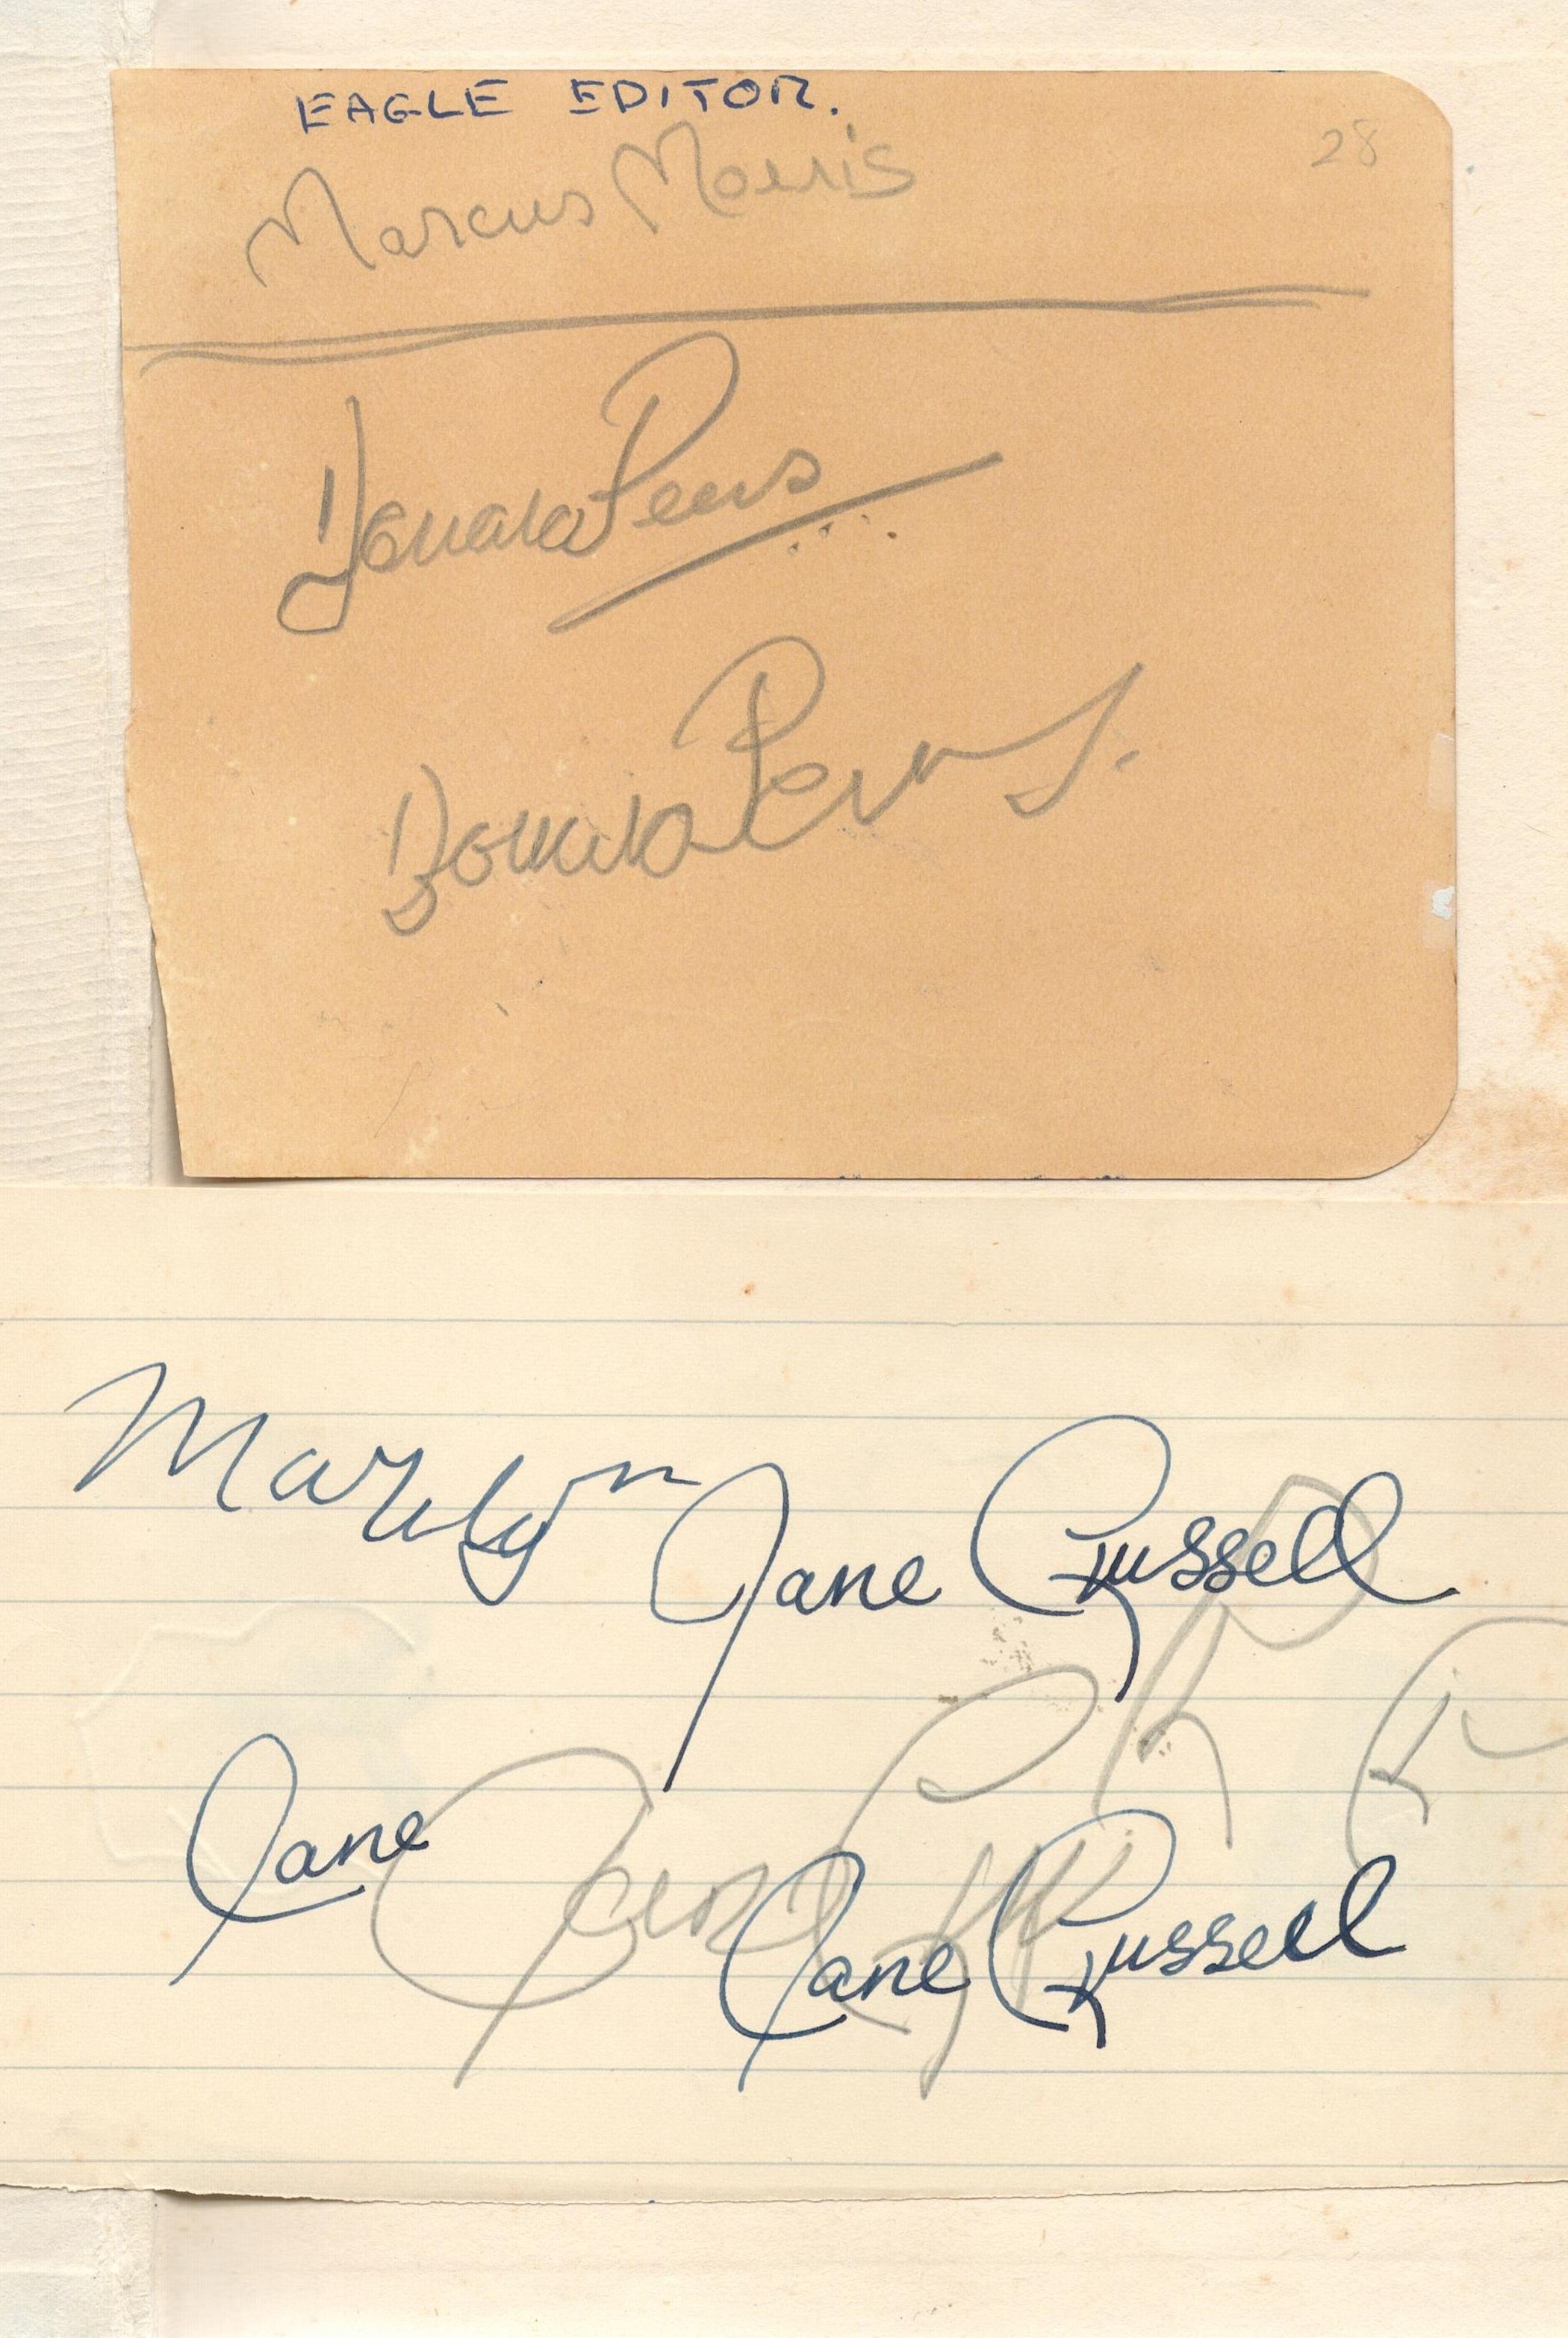 EAGLE EDITOR.
28
Marcus Morris
Donald Peers
Donald Peers.
Marilyn Jane Russell
Jane
Jane Russell